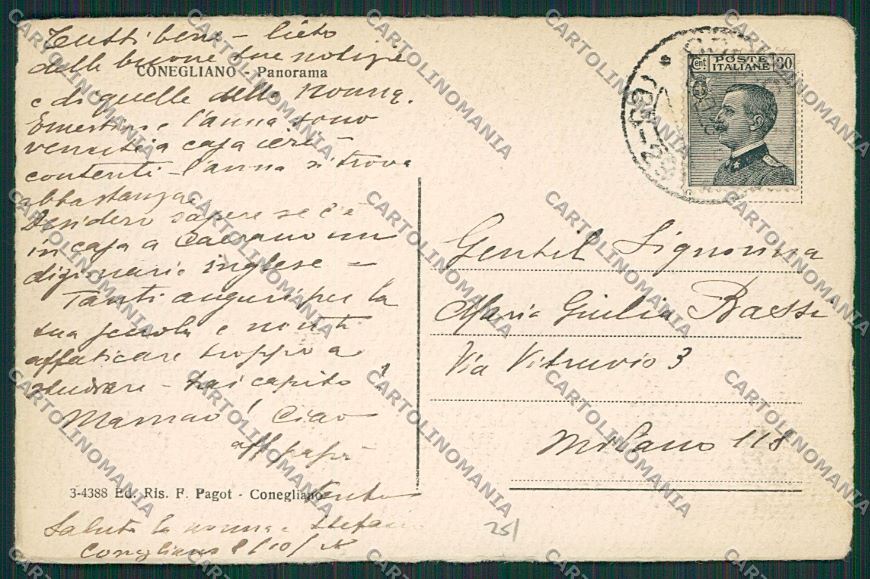 Tutti bene - lieto
delle buone tue notizie
CONEGLIANO - Panorama
e di quelle della Nonna.
e l'anna sono
venuti a casa ieri
contenti - l'anna si trova
abbastanza
Desidero sapere se c'è
in casa a un
dizionario inglese -
Tanti auguri per la
tua scuola e non ti
affaticare troppo a
studiare - hai capito?
Ciao
aff papà
3-4388 Ed. Ris. F. Pagot - Conegliano
Saluta la nonna e
Conegliano
cent POSTE ITALIANE 30
Gentil Signorina
Maria Giulia Bassi
Via Vitruvio 3
Milano 118
25/
CARTOLINOMANIA